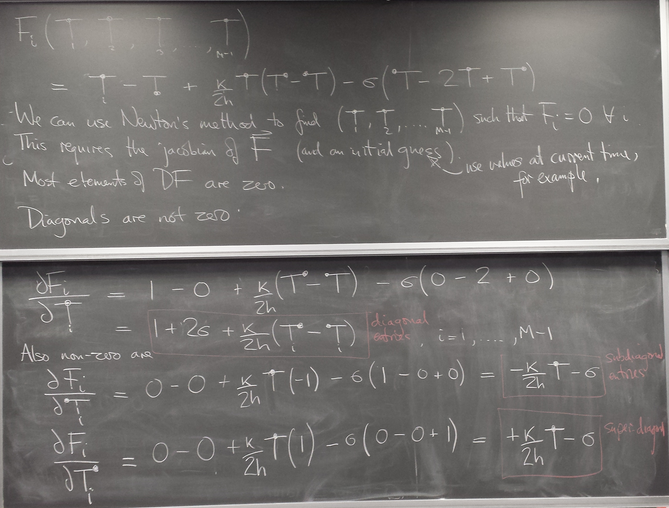 Fᵢ(T₁, T₂, T₃, ... T_{M-1})
= T_i - T + k/2h T(T - T) - σ(T - 2T + T)
We can use Newton's method to find (T₁, T₂, ... T_{M-1}) such that Fᵢ = 0 ∀ i.
This requires the jacobian of F (and an initial guess).
use values at current time, for example.
Most elements of DF are zero.
Diagonals are not zero:
∂Fᵢ/∂Tᵢ = 1 - 0 + k/2h (T - T) - σ(0 - 2 + 0)
= 1 + 2σ + k/2h (Tᵢ - Tᵢ) diagonal entries, i = 1, ..., M-1
Also non-zero are
∂Fᵢ/∂Tᵢ = 0 - 0 + k/2h T(-1) - σ(1 - 0 + 0) = -k/2h T - σ subdiagonal entries
∂Fᵢ/∂Tᵢ = 0 - 0 + k/2h T(1) - σ(0 - 0 + 1) = +k/2h T - σ super-diagonal